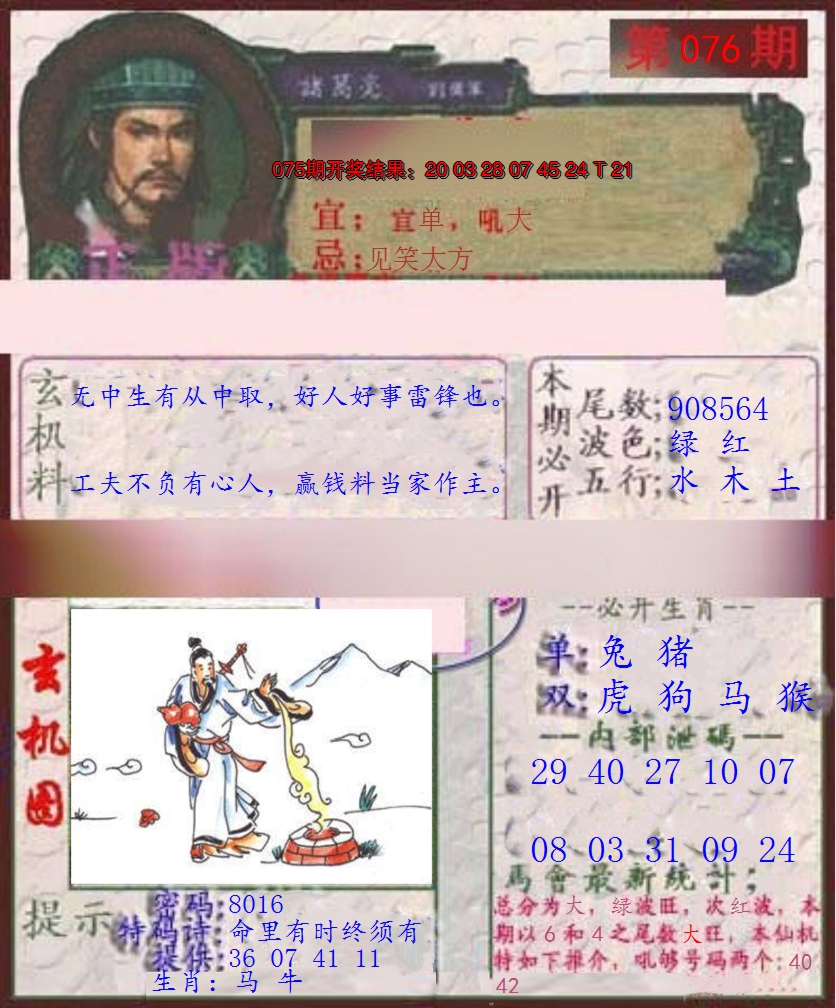 第 076 期
諸葛亮
075期开奖结果: 20 03 28 07 45 24 T 21
宜: 宜单, 吼大
忌: 见笑大方
正版
玄机料
无中生有从中取, 好人好事雷锋也。
工夫不负有心人, 赢钱料当家作主。
本期必开
尾数: 908564
波色: 绿 红
五行: 水 木 土
玄机图
--必开生肖--
单: 兔 猪
双: 虎 狗 马 猴
--内部泄碼--
29 40 27 10 07
08 03 31 09 24
馬會最新統計;
总分为大, 绿波旺, 次红波, 本
期以6和4之尾数大旺, 本仙机
特如下推介, 吼够号码两个: 40
42
提示
密码: 8016
特码诗: 命里有时终须有
提供: 36 07 41 11
生肖: 马 牛